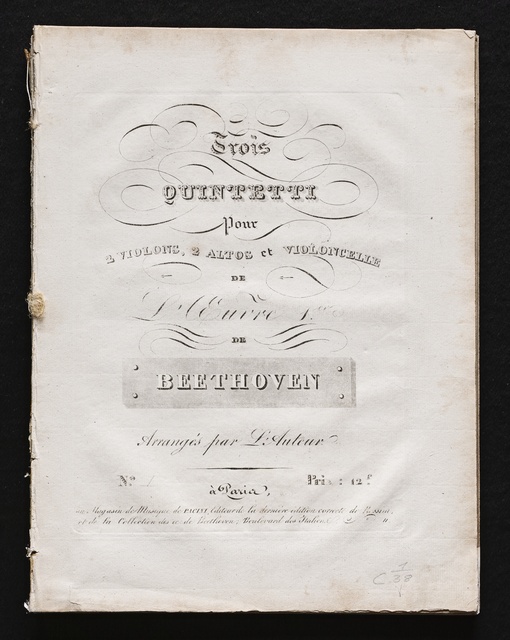 Trois
QUINTETTI
pour
2 VIOLONS, 2 ALTOS et VIOLONCELLE
DE
L'Œuvre 1.er
DE
BEETHOVEN
Arrangés par L'Auteur
N.º 1 Prix: 12 f
à Paris,
au Magasin de Musique de PACINI, Editeur de la dernière édition correcte de
et de la Collection des de Beethoven, Boulevard des Italiens,
C 1/38